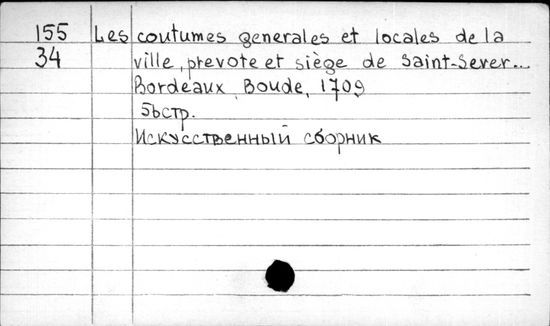 155 Les coutumes generales et locales de la
34 ville, prevote et siège de Saint-Sever...
Bordeaux, Boude, 1709
56стр.
Искусственный сборник